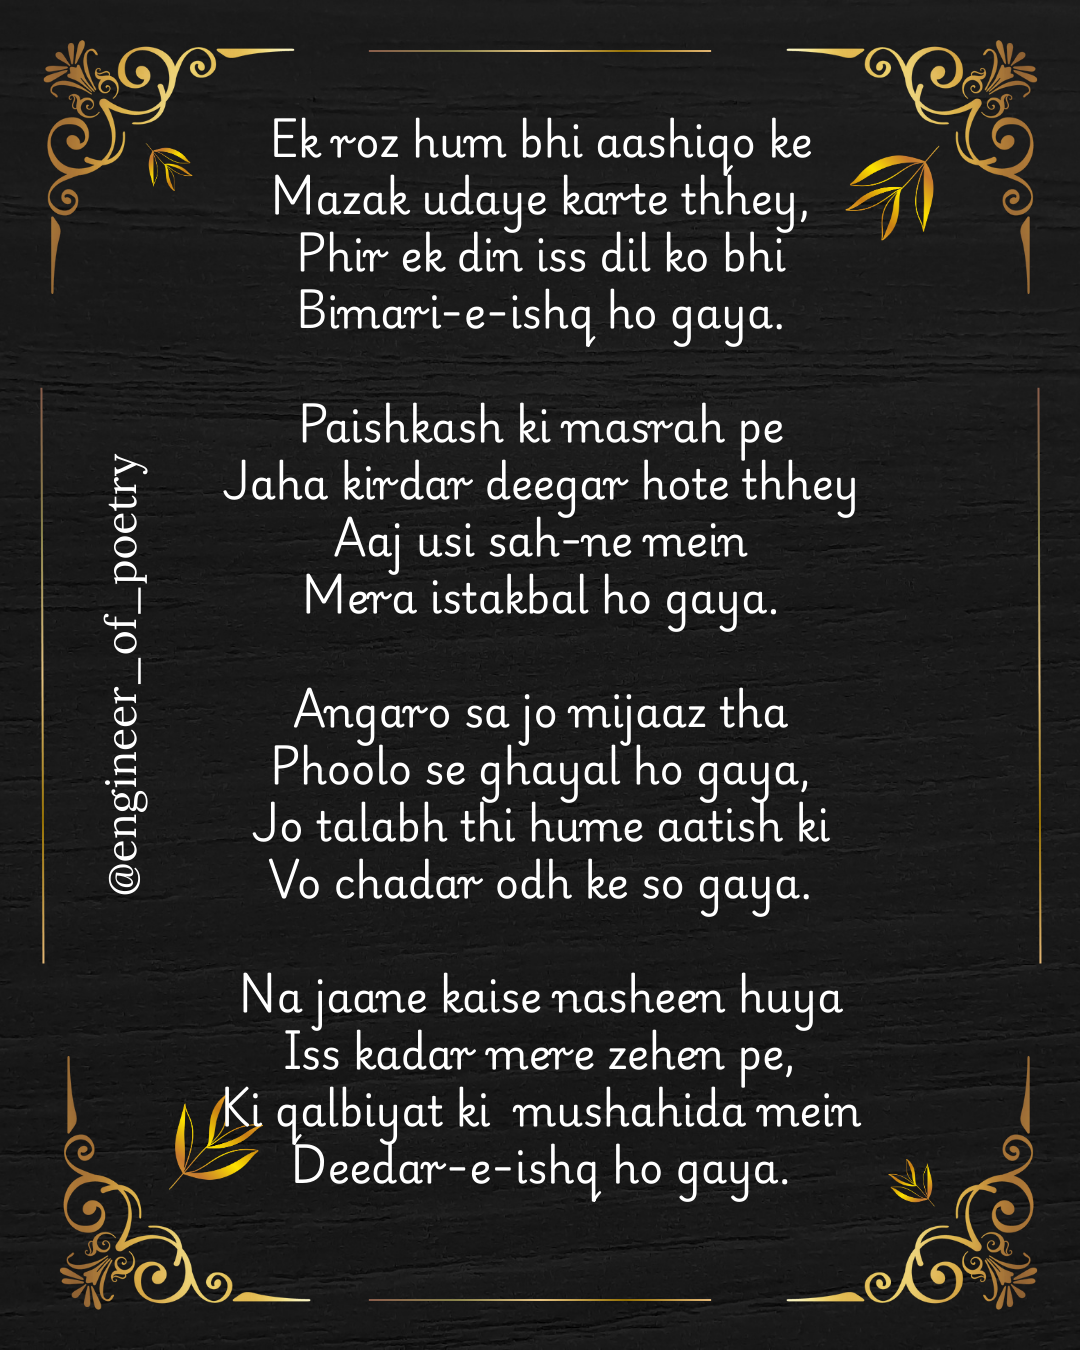 Ek roz hum bhi aashiqo ke
Mazak udaye karte thhey,
Phir ek din iss dil ko bhi
Bimari-e-ishq ho gaya.
Paishkash ki masrah pe
Jaha kirdar deegar hote thhey
Aaj usi sah-ne mein
Mera istakbal ho gaya.
Angaro sa jo mijaaz tha
Phoolo se ghayal ho gaya,
Jo talabh thi hume aatish ki
Vo chadar odh ke so gaya.
Na jaane kaise nasheen huya
Iss kadar mere zehen pe,
Ki qalbiyat ki  mushahida mein
Deedar-e-ishq ho gaya.
@engineer_of_poetry